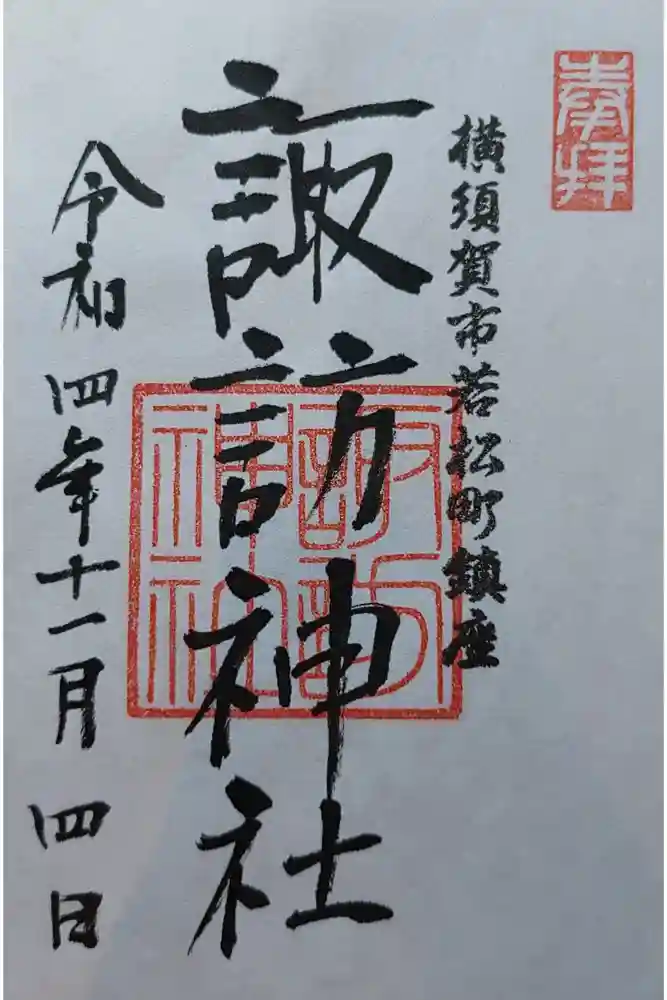 奉拝
横須賀市若松町鎮座
諏訪神社
諏訪
神社
令和四年十一月四日